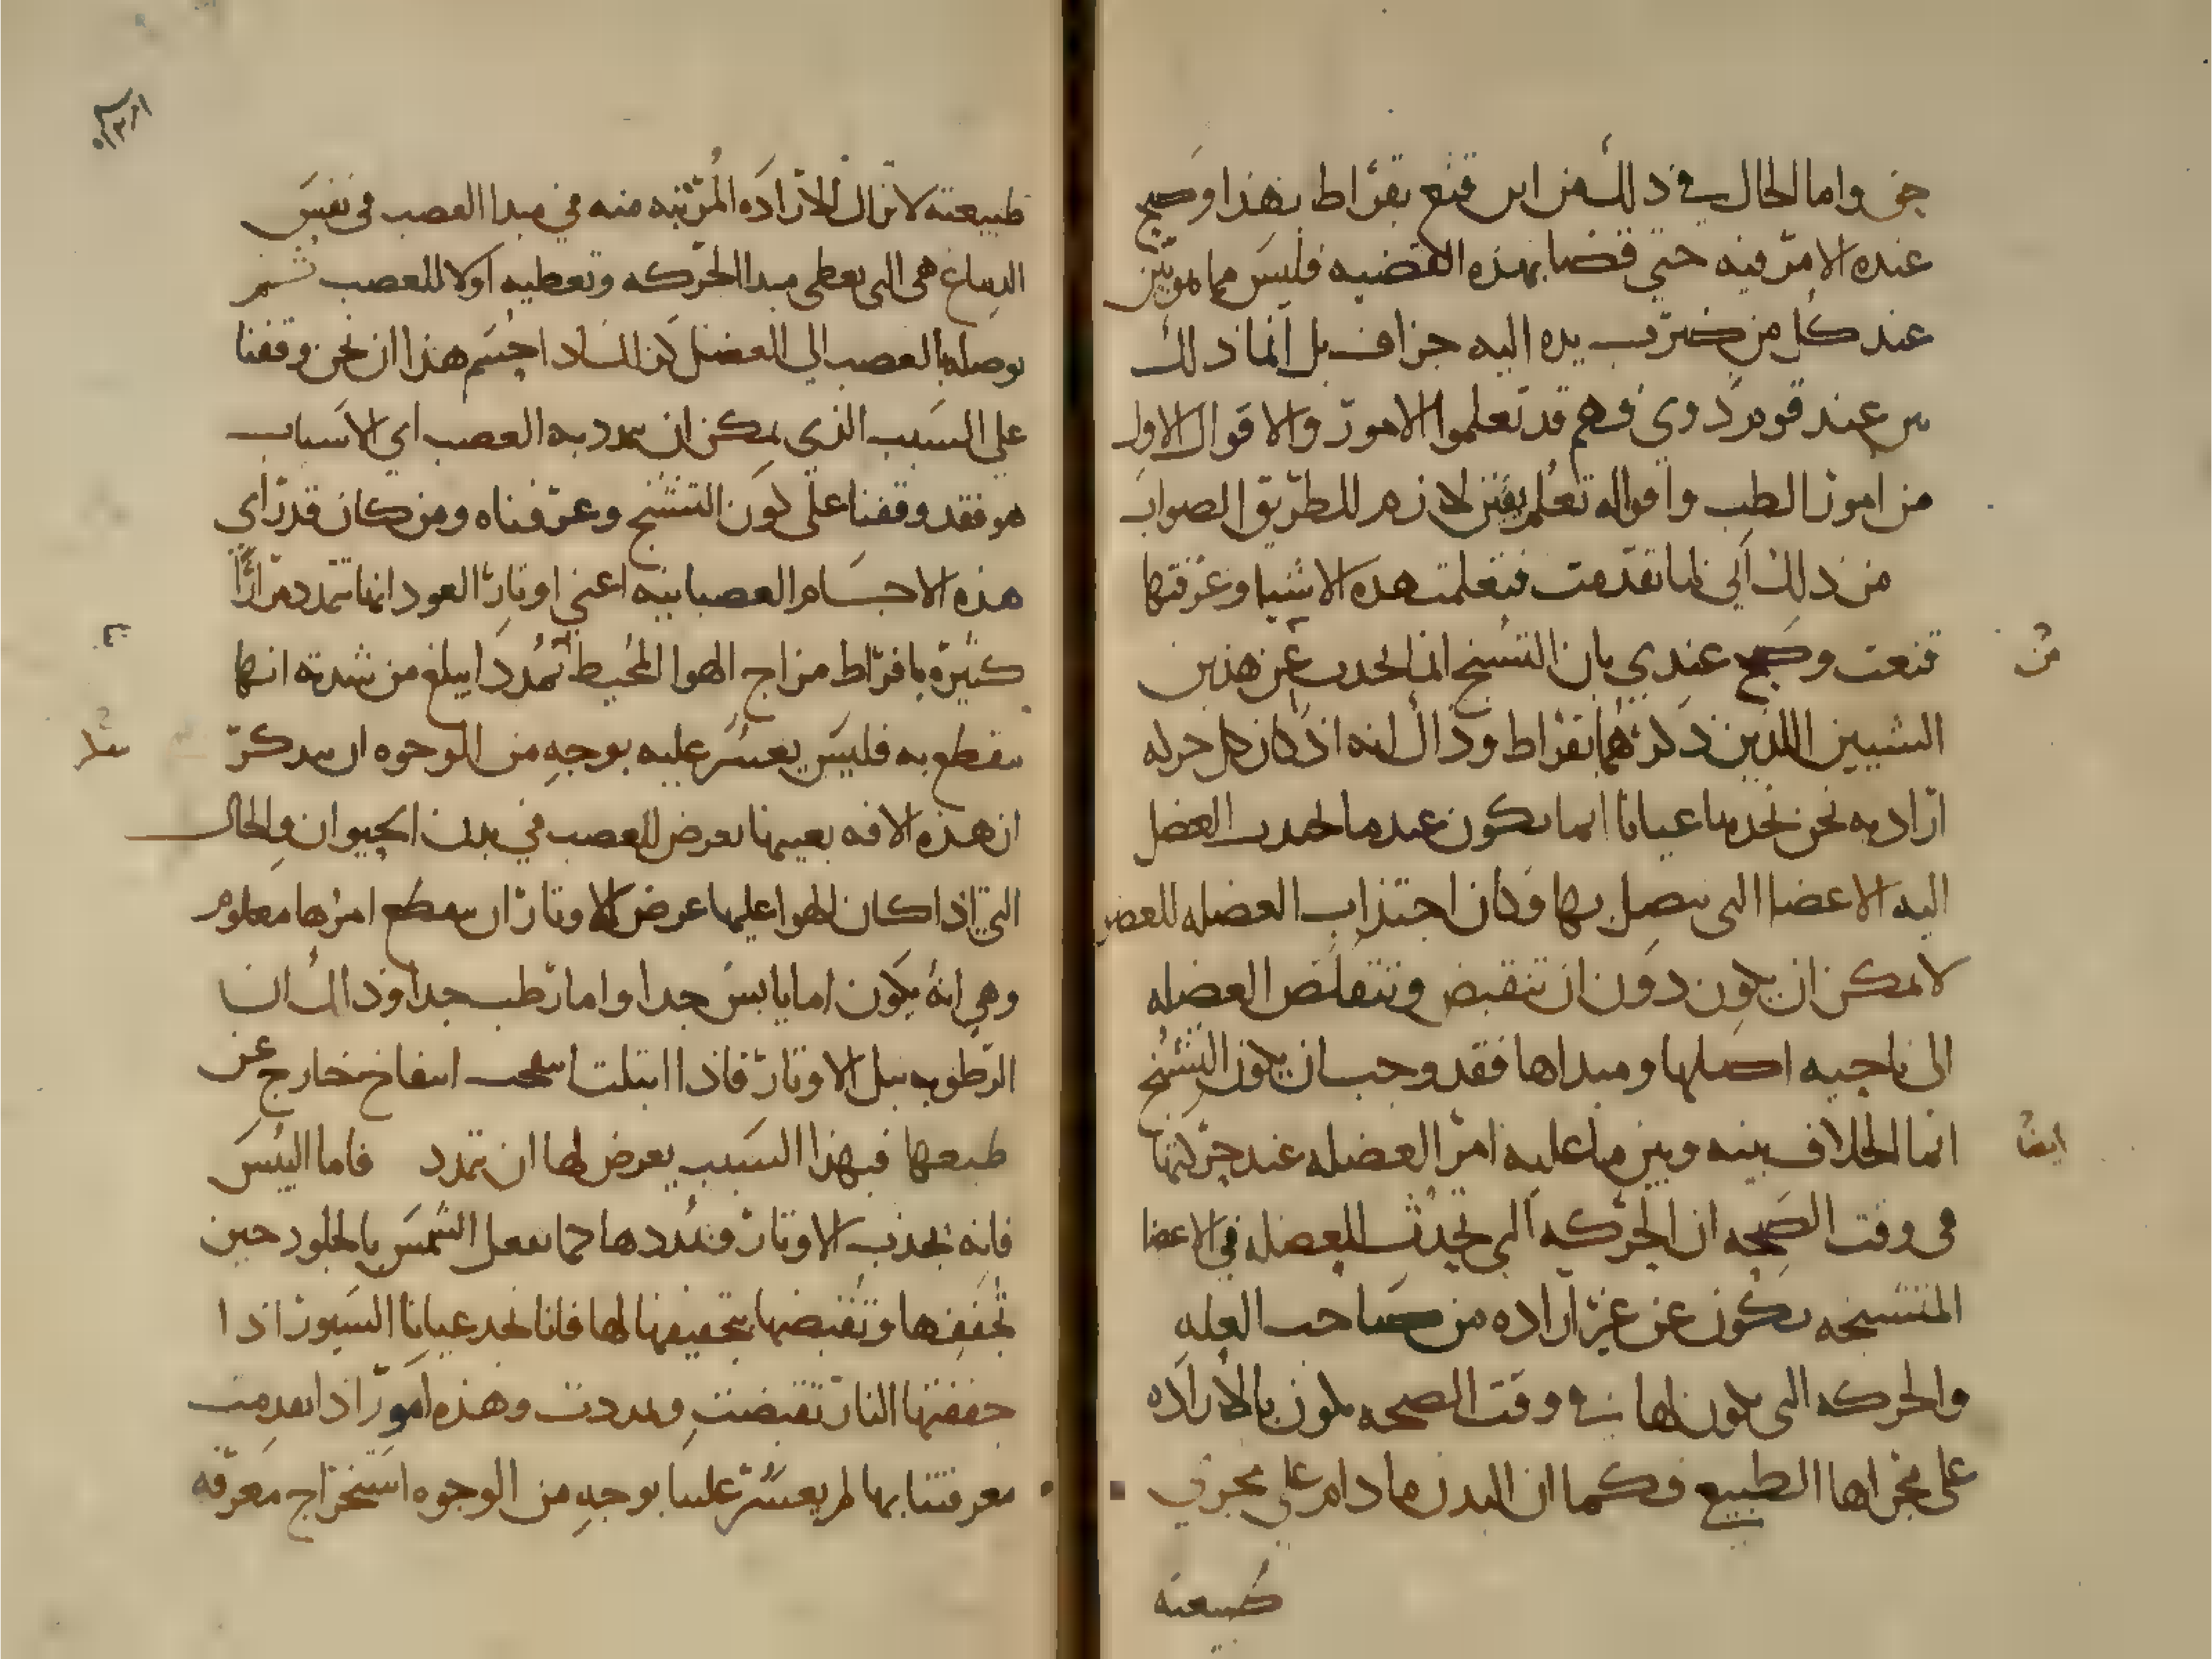 حق واما الحال في ذلك من اين قنع بقراط بهذا وصح
عنده الامر فيه حتي قضا بهذه القضيه فليس مما هو بين
عند كل من ضرب يده اليه جزاف بل انما ذلك
بين عند قوم ذوي فهم قد تعلموا الامور والاقوال الاول
من امور الطب واقواله تعلم يقين لازم للطريق الصواب
من ذلك اني لما تقدمت فتعلمت هذه الاشيا وعرفتها
قنعت وصح عندي بان التشنج انما يحدث عن هذين
الشيين اللذين ذكرهما بقراط وذاك انه اذ كان كل حركه
اراديه نحن نجدها عيانا انما تكون عندما تجذب العضل
اليه الاعضا التي تتصل بها وكان اجتذاب العضله للعضو
لا يمكن ان يكون دون ان تنقبض وتتقلص العضله
الى ناحيه اصلها ومبداها فقد وجب ان يكون التشنج
انما الخلاف بينه وبين ما عليه امر العضله عند حركتها
في وقت الصحه ان الحركه التي تحدث للعضله في الاعضا
المتشنجه تكون عن غير اراده من صاحب العله
والحركه التي تكون لها في وقت الصحه تكون بالاراده
على مجراها الطبيع فكما ان البدن ما دام على مجري
طبيعته
من
ايضا
طبيعته لا تزال الاراده المرتبه منه في مبدا العصب في نفس
الدماغ هي التي تعطي مبدا الحركه وتعطيه اولا للعصب ثم
توصله بالعصب الي العضل كذلك اذا جسم هذا ان نحن وقفنا
علي السبب الذي يمكن ان يمدد به العصب اي الاسباب
هو فقد وقفنا علي كون التشنج وعرفناه ومن كان قد راي
هذه الاجسام العصبانيه اعني اوتار العود انها تتمدد مرارا
كثيره بافراط مزاج الهوا المحيط تمددا يبلغ من شدته انها
تنقطع به فليس يعسر عليه بوجه من الوجوه ان يتذكر
ان هذه الافه بعينها تعرض للعصب في بدن الحيوان والحال
التي اذا كان الهوا عليها عرض للاوتار ان تنقطع امرها معلوم
وهي انه يكون اما يابس جدا واما رطب جدا وذاك ان
الرطوبه تبل الاوتار فاذا ابتلت انتفخت انتفاخ خارج عن
طبعها فبهذا السبب يعرض لها ان تمدد فاما اليبس
فانه يجذب الاوتار فيمددها كما تفعل الشمس بالجلود حين
تجففها وتقبضها بتجفيفها لها فانا نجد عيانا السيور اذا
جففتها النار تقبضت وتمددت وهذه امور اذا تقدمت
معرفتنا بها لم يعسر علينا بوجه من الوجوه استخراج معرفه